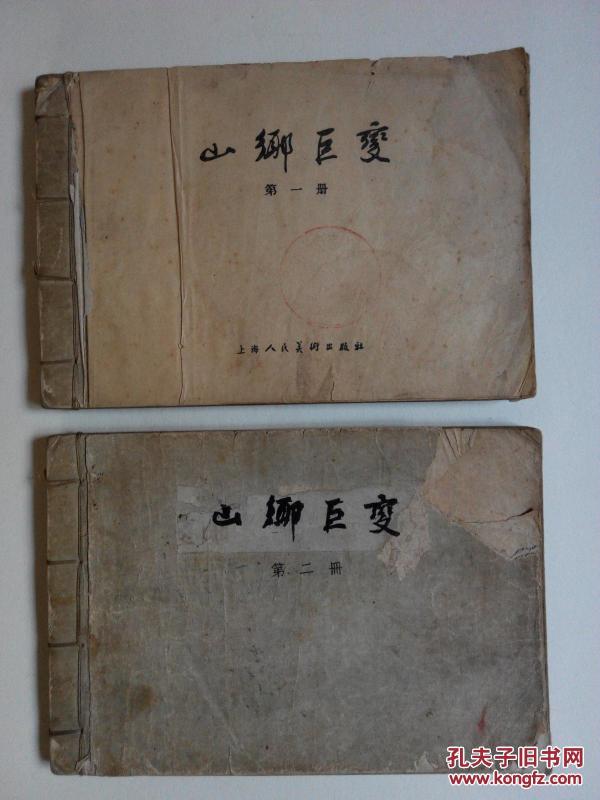 山鄉巨變
第一册
上海人民美術出版社
山鄉巨变
第二册
孔夫子旧书网
www.kongfz.com